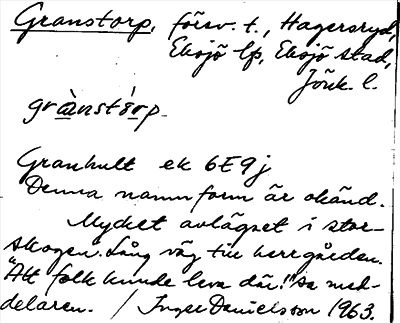 Granstorp, försv. t., Hagersryd,
Eksjö lfs, Eksjö stad,
Jönk. l.
grànstórp.
Granhult ek 6E9j
Denna namnform är okänd.
Mycket avlägset i stor-
skogen. Lång väg till herrgården.
"Att folk kunde leva där!" sa med-
delaren. / Inger Danielsson 1963.